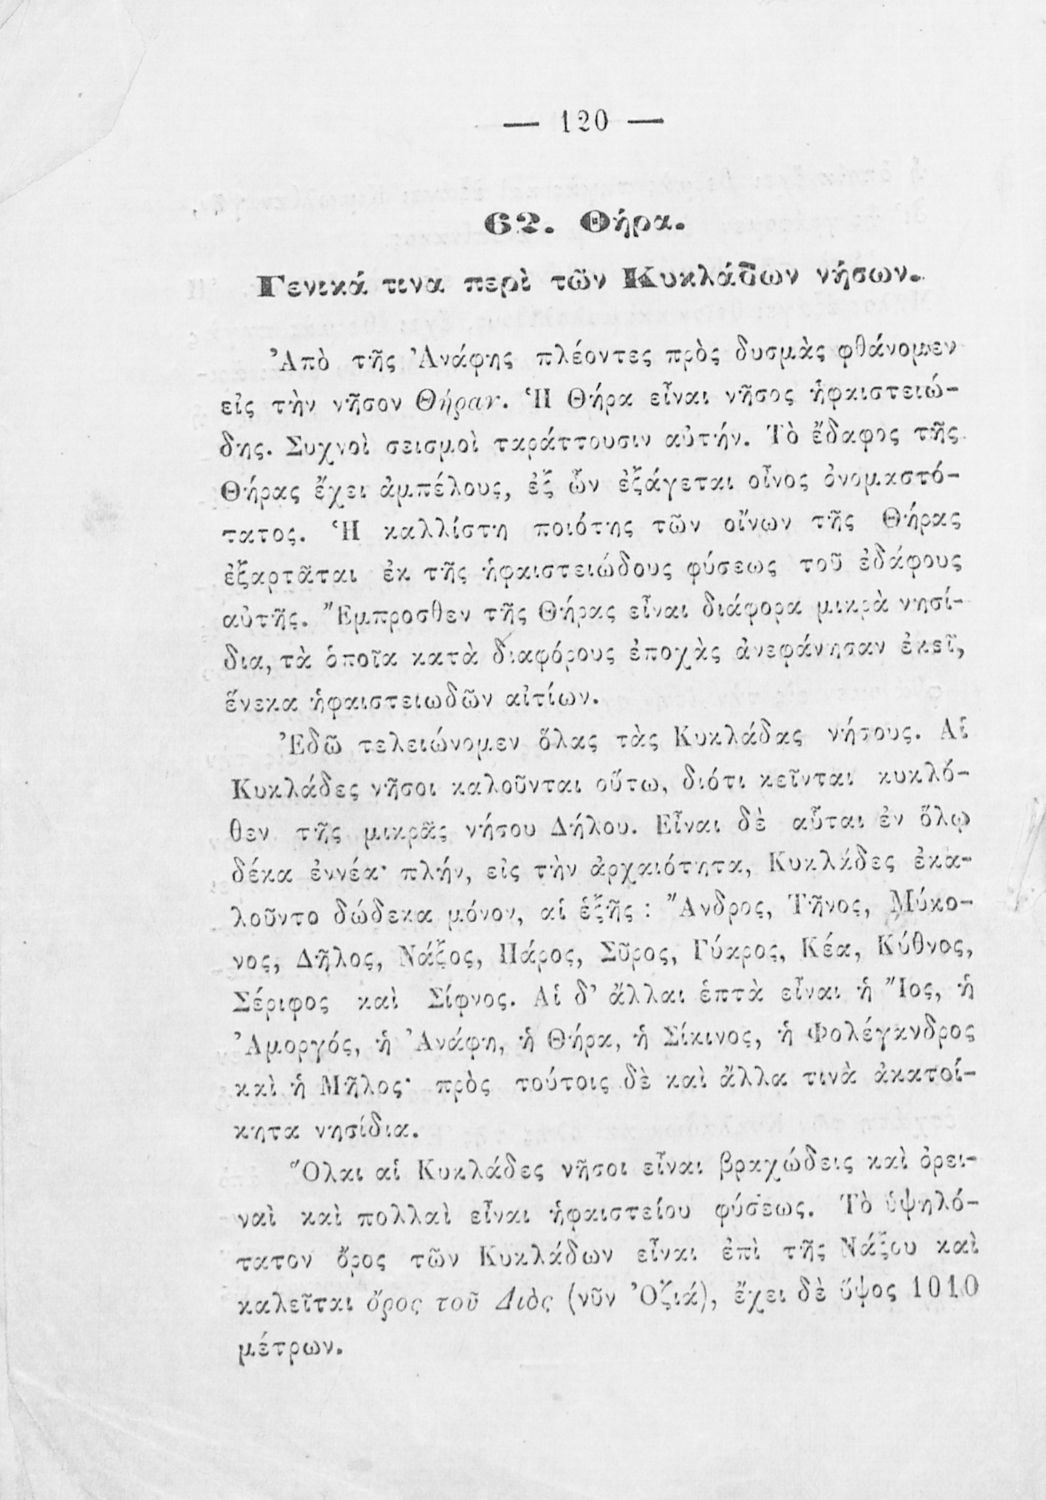 — 120 —
62. Θήρα.
Γενικά τινα περὶ τῶν Κυκλάδων νήσων.
Ἀπὸ τῆς Ἀνάφης πλέοντες πρὸς δυσμὰς φθάνομεν
εἰς τὴν νῆσον Θήραν. Ἡ Θήρα εἶναι νῆσος ἡφαιστειώ-
δης. Συχνοὶ σεισμοὶ ταράττουσιν αὐτήν. Τὸ ἔδαφος τῆς
Θήρας ἔχει ἀμπέλους, ἐξ ὧν ἐξάγεται οἶνος ὀνομαστό-
τατος. Ἡ καλλίστη ποιότης τῶν οἴνων τῆς Θήρας
ἐξαρτᾶται ἐκ τῆς ἡφαιστειώδους φύσεως τοῦ ἐδάφους
αὐτῆς. Ἔμπροσθεν τῆς Θήρας εἶναι διάφορα μικρὰ νησί-
δια, τὰ ὁποῖα κατὰ διαφόρους ἐποχὰς ἀνεφάνησαν ἐκεῖ,
ἕνεκα ἡφαιστειωδῶν αἰτίων.
Ἐδῶ τελειώνομεν ὅλας τὰς Κυκλάδας νήσους. Αἱ
Κυκλάδες νῆσοι καλοῦνται οὕτω, διότι κεῖνται κυκλό-
θεν τῆς μικρᾶς νήσου Δήλου. Εἶναι δὲ αὗται ἐν ὅλῳ
δέκα ἐννέα· πλήν, εἰς τὴν ἀρχαιότητα, Κυκλάδες ἐκα-
λοῦντο δώδεκα μόνον, αἱ ἑξῆς : Ἄνδρος, Τῆνος, Μύκο-
νος, Δῆλος, Νάξος, Πάρος, Σῦρος, Γύαρος, Κέα, Κύθνος,
Σέριφος καὶ Σίφνος. Αἱ δ’ ἄλλαι ἑπτὰ εἶναι ἡ Ἴος, ἡ
Ἀμοργός, ἡ Ἀνάφη, ἡ Θήρα, ἡ Σίκινος, ἡ Φολέγανδρος
καὶ ἡ Μῆλος· πρὸς τούτοις δὲ καὶ ἄλλα τινὰ ἀκατοί-
κητα νησίδια.
Ὅλαι αἱ Κυκλάδες νῆσοι εἶναι βραχώδεις καὶ ὀρει-
ναὶ καὶ πολλαὶ εἶναι ἡφαιστείου φύσεως. Τὸ ὑψηλό-
τατον ὄρος τῶν Κυκλάδων εἶναι ἐπὶ τῆς Νάξου καὶ
καλεῖται ὄρος τοῦ Διὸς (νῦν Ὀζιά), ἔχει δὲ ὕψος 1010
μέτρων.